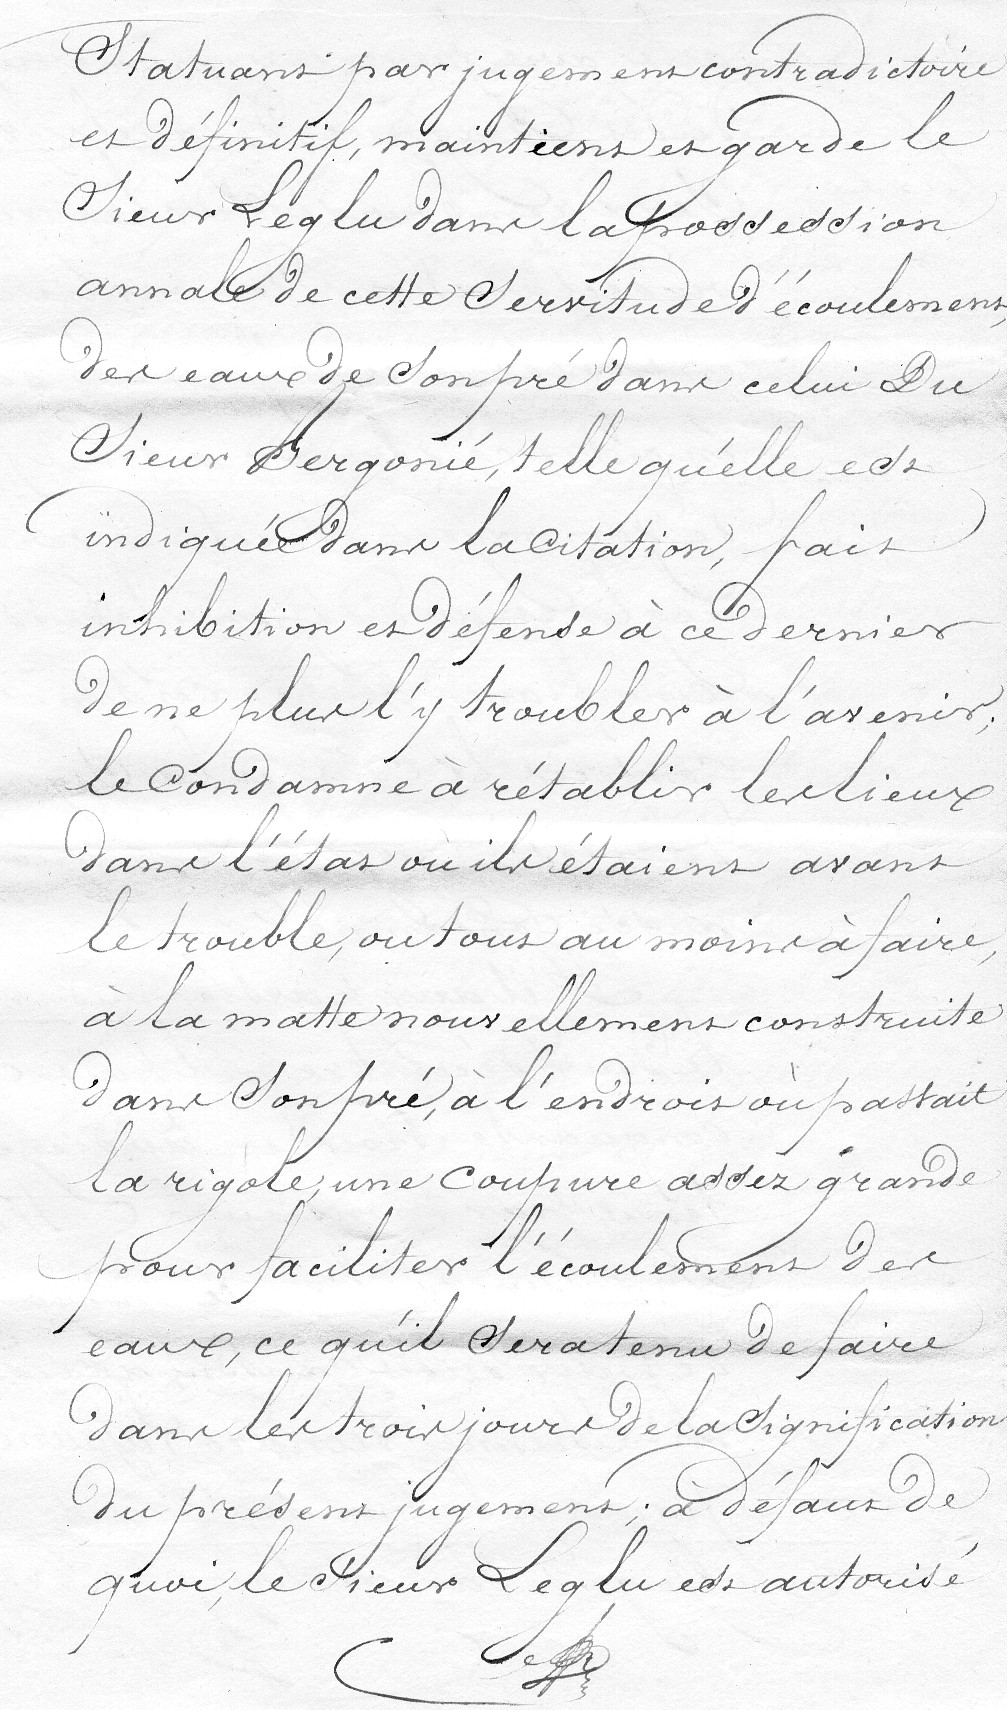 Statuant par jugement contradictoire
et définitif, maintient et garde le
Sieur Leglu dans la possession
annale de cette Servitude d'écoulement,
des eaux de Son pré dans celui Du
Sieur Bergonié, telle qu'elle est
indiquée dans la Citation, fait
inhibition et défense à ce dernier
de ne plus l'y troubler à l'avenir;
le Condamne à rétablir les lieux
dans l'état où ils étaient avant
le trouble, ou tout au moins à faire,
à la matte nouvellement construite
dans Son pré, à l'endroit où passait
la rigole, une Coupure assez grande
pour faciliter l'écoulement des
eaux, ce qu'il Sera tenu de faire
dans les trois jours de la Signification
du présent jugement; à défaut de
quoi, le Sieur Leglu est autorisé